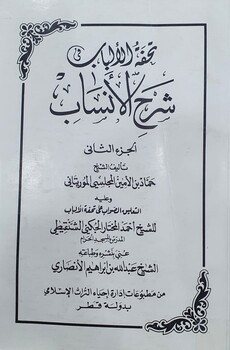 تحفة الألباب في
شرح الأنساب
الجزء الثاني
تأليف الشيخ
حماد بن الأمين المجلسي الموريتاني
وعليه
التعليق الصواب على تحفة الألباب
للشيخ أحمد المختار الجكني الشنقيطي
المدرس بالمسجد الحرام
عني بنشره وطباعته
الشيخ عبدالله بن إبراهيم الأنصاري
من مطبوعات إدارة إحياء التراث الإسلامي
بدولة قطر